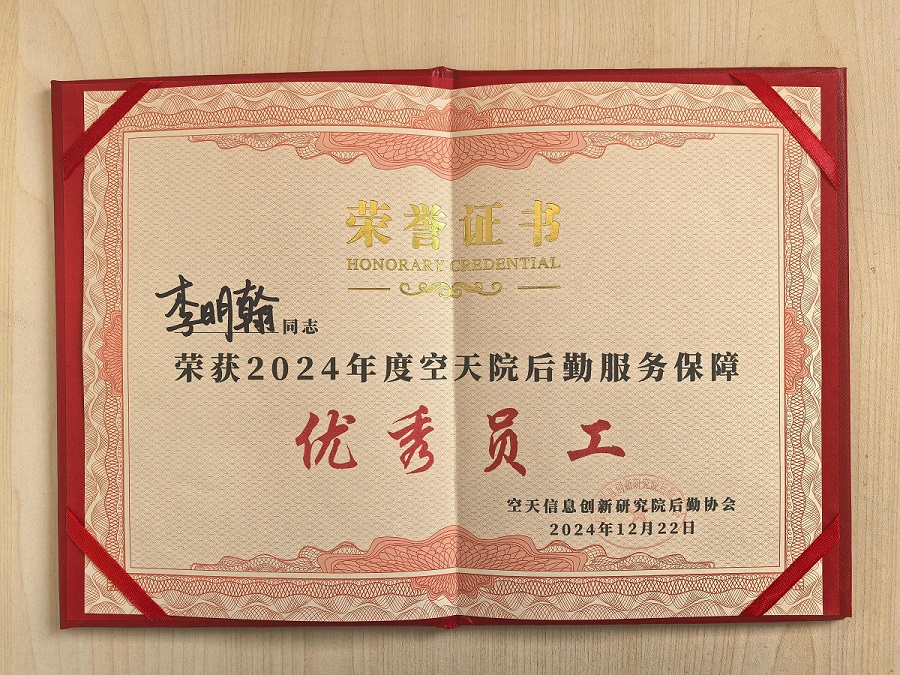 荣誉证书
HONORARY CREDENTIAL
李明翰同志
荣获2024年度空天院后勤服务保障
优秀员工
空天信息创新研究院后勤协会
2024年12月22日